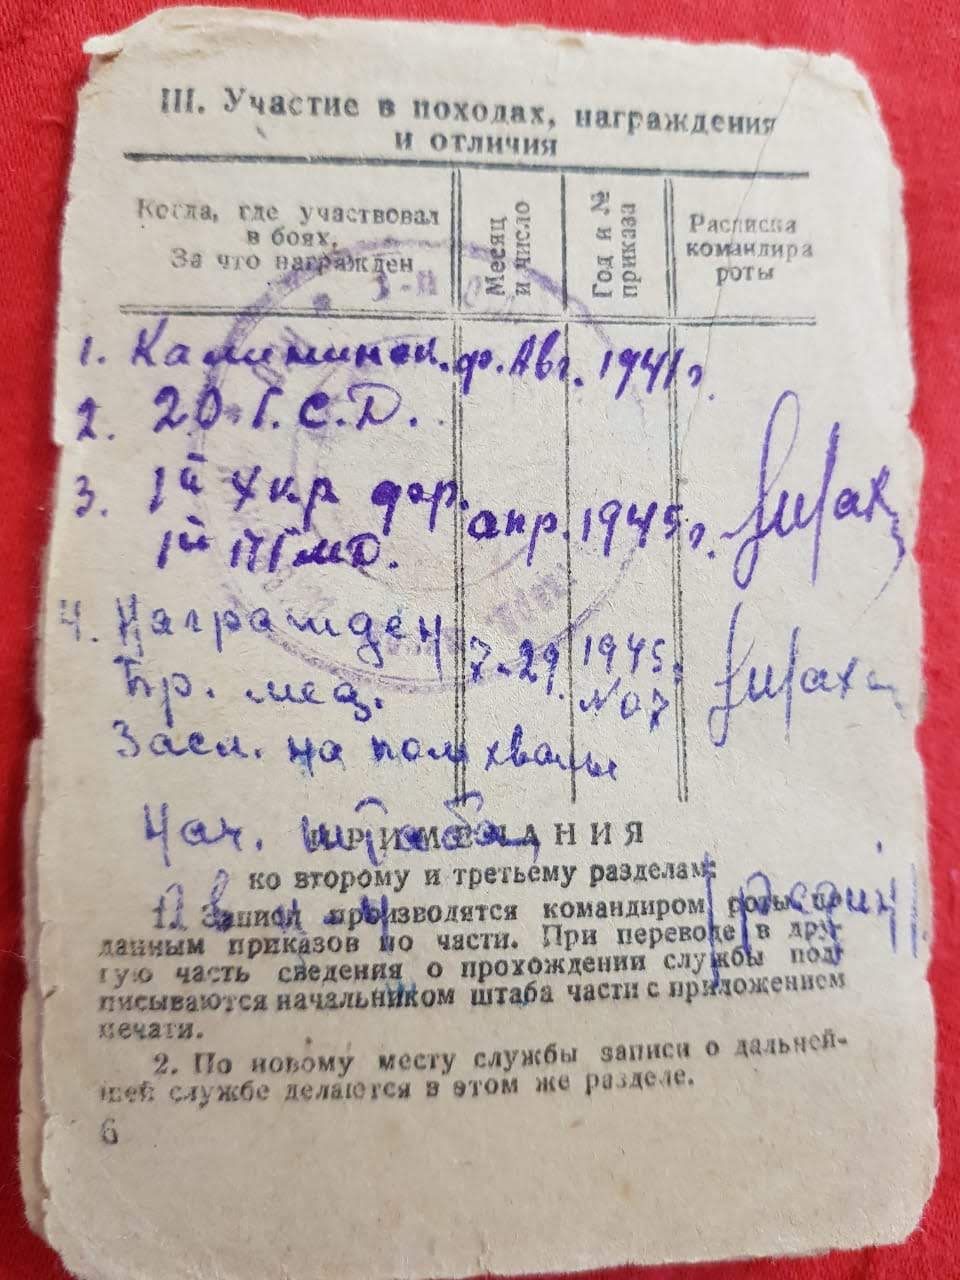 III. Участие в походах, награждения
и отличия
Когда, где участвовал
в боях.
За что награжден
Месяц
и число
Год и №
приказа
Расписка
командира
роты
1. Калининск. ф. Авг. 1941 г.
2. 20 Г.С.Д.
3. 1й Укр фр. апр. 1945 г.
4. Награжден 7-29. 1945.
бр. мед. №07
Засл. на полк хвалы
Нач. штаба
ПРИМЕЧАНИЯ
ко второму и третьему разделам:
1. Записи производятся командиром роты по
данным приказов по части. При переводе в дру-
гую часть сведения о прохождении службы под-
писываются начальником штаба части с приложением
печати.
2. По новому месту службы записи о дальней-
шей службе делаются в этом же разделе.
6